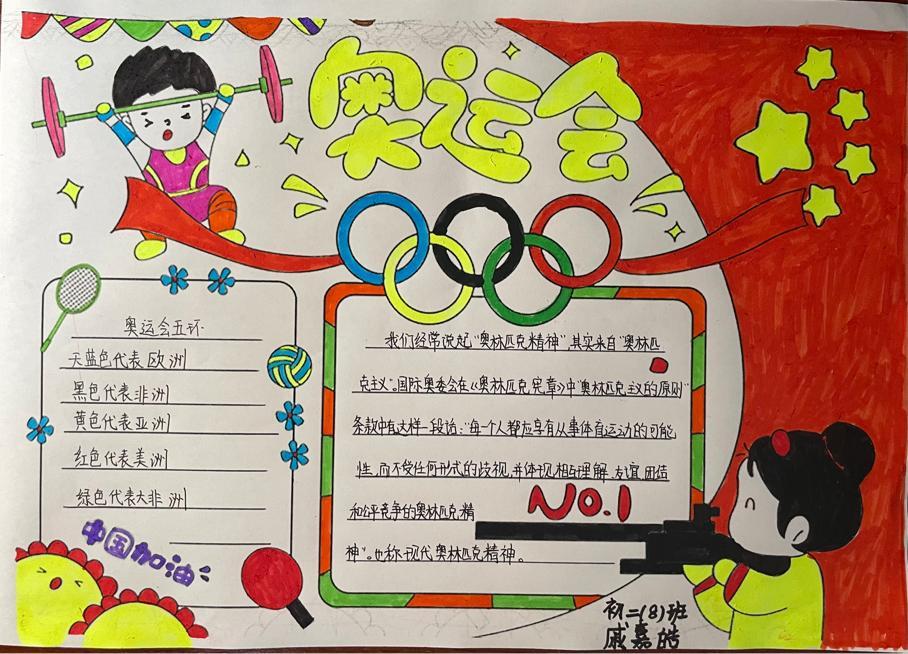 奥运会
奥运会五环
天蓝色代表欧洲
黑色代表非洲
黄色代表亚洲
红色代表美洲
绿色代表大非洲
中国加油
我们经常说起“奥林匹克精神”,其实来自“奥林匹
克主义”。国际奥委会在《奥林匹克宪章》中“奥林匹克主义的原则”
条款中有这样一段话:“每一个人都应享有从事体育运动的可能
性,而不受任何形式的歧视,并体现相互理解、友谊、团结
和公平竞争的奥林匹克精
神”。也称现代奥林匹克精神。
NO.1
初二(8)班
戚嘉皓